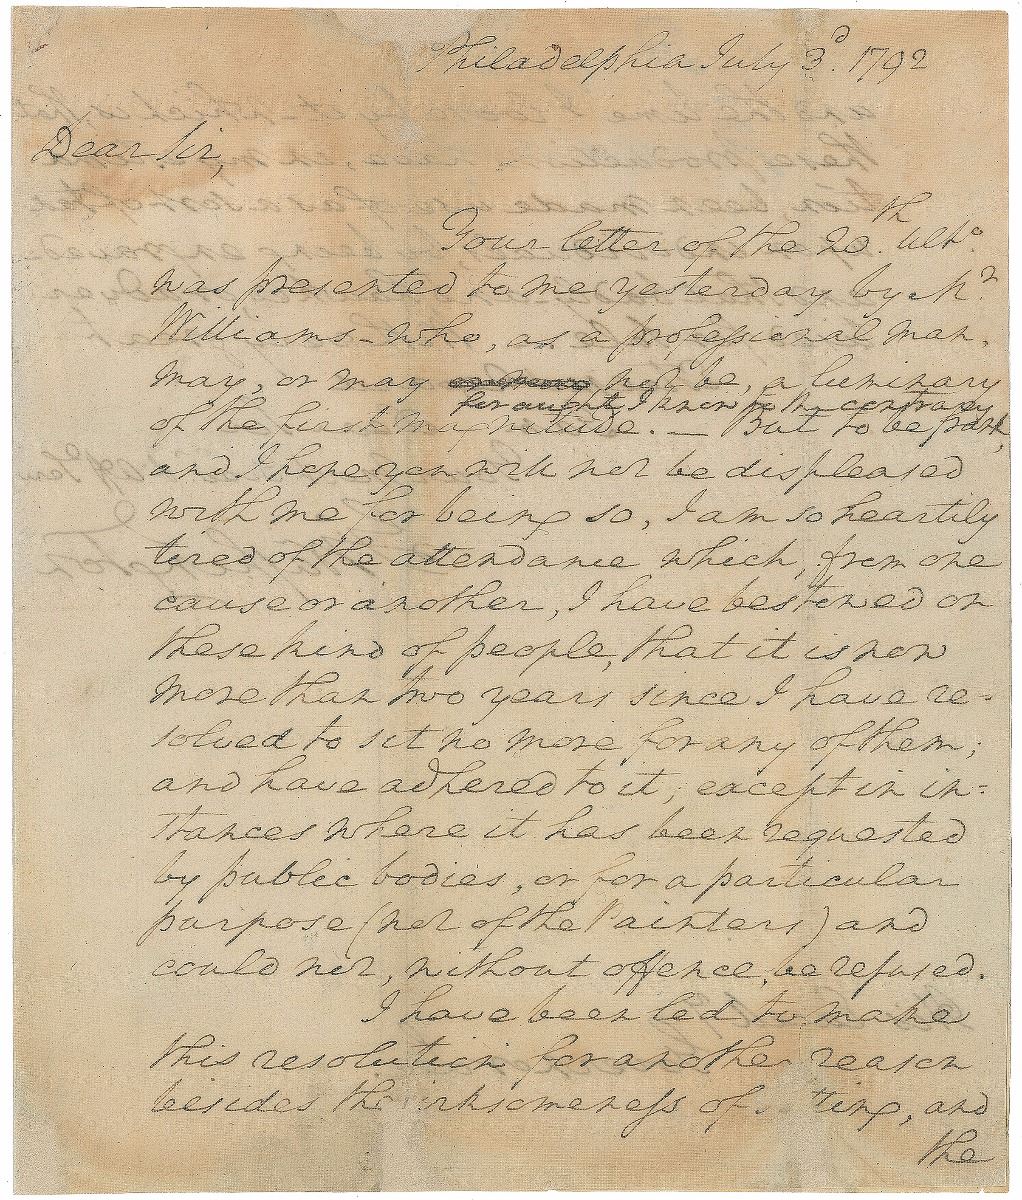 Philadelphia July 3d. 1792
Dear Sir,
Your letter of the 20th. Ulto
was presented to me yesterday by Mr.
Williams - who, as a professional man,
may, or may not be, a luminary
for aught I know to the contrary
of the first magnitude. — But to be frank,
and I hope you will not be displeased
with me for being so, I am so heartily
tired of the attendance which, from one
cause or another, I have bestowed on
these kind of people, that it is now
more than two years since I have re-
solved to sit no more for any of them;
and have adhered to it; except in in-
stances where it has been requested
by public bodies, or for a particular
purpose (not of the Painters) and
could not, without offence, be refused.
I have been led to make
this resolution for another reason
besides the irksomeness of sitting, and
the